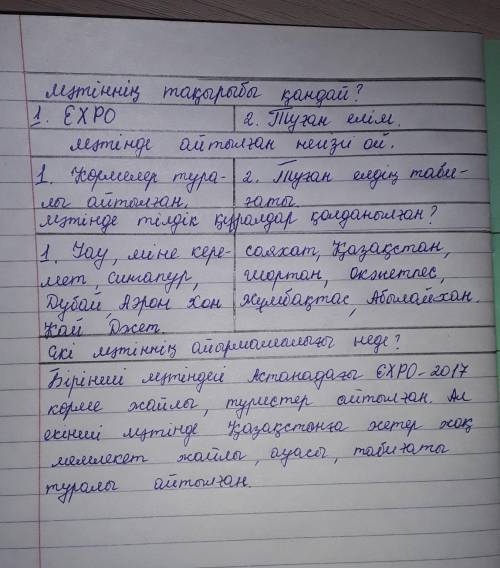 Мәтіннің тақырыбы қандай?
1. EXPO 2. Туған елім.
Мәтінде айтылған негізгі ой.
1. Көрмелер тура- 2. Туған елдің таби-
лы айтылған. ғаты.
Мәтінде тілдік құралдар қолданылған?
1. Уау, міне кере- саяхат, Қазақстан,
мет, сингапур, шортан, оқжетпес,
Дубай, Аэрон Хон Жұмбақтас, Абылайхан.
Кай Джет.
Екі мәтіннің айырмашалығы неде?
Бірінші мәтіндей Астанадағы EXPO-2017
көрме жайлы, туристер айтылған. Ал
екінші мәтінде Қазақстанға жетер жақ
мемлекет жайлы, ауасы, табиғаты
туралы айтылған.